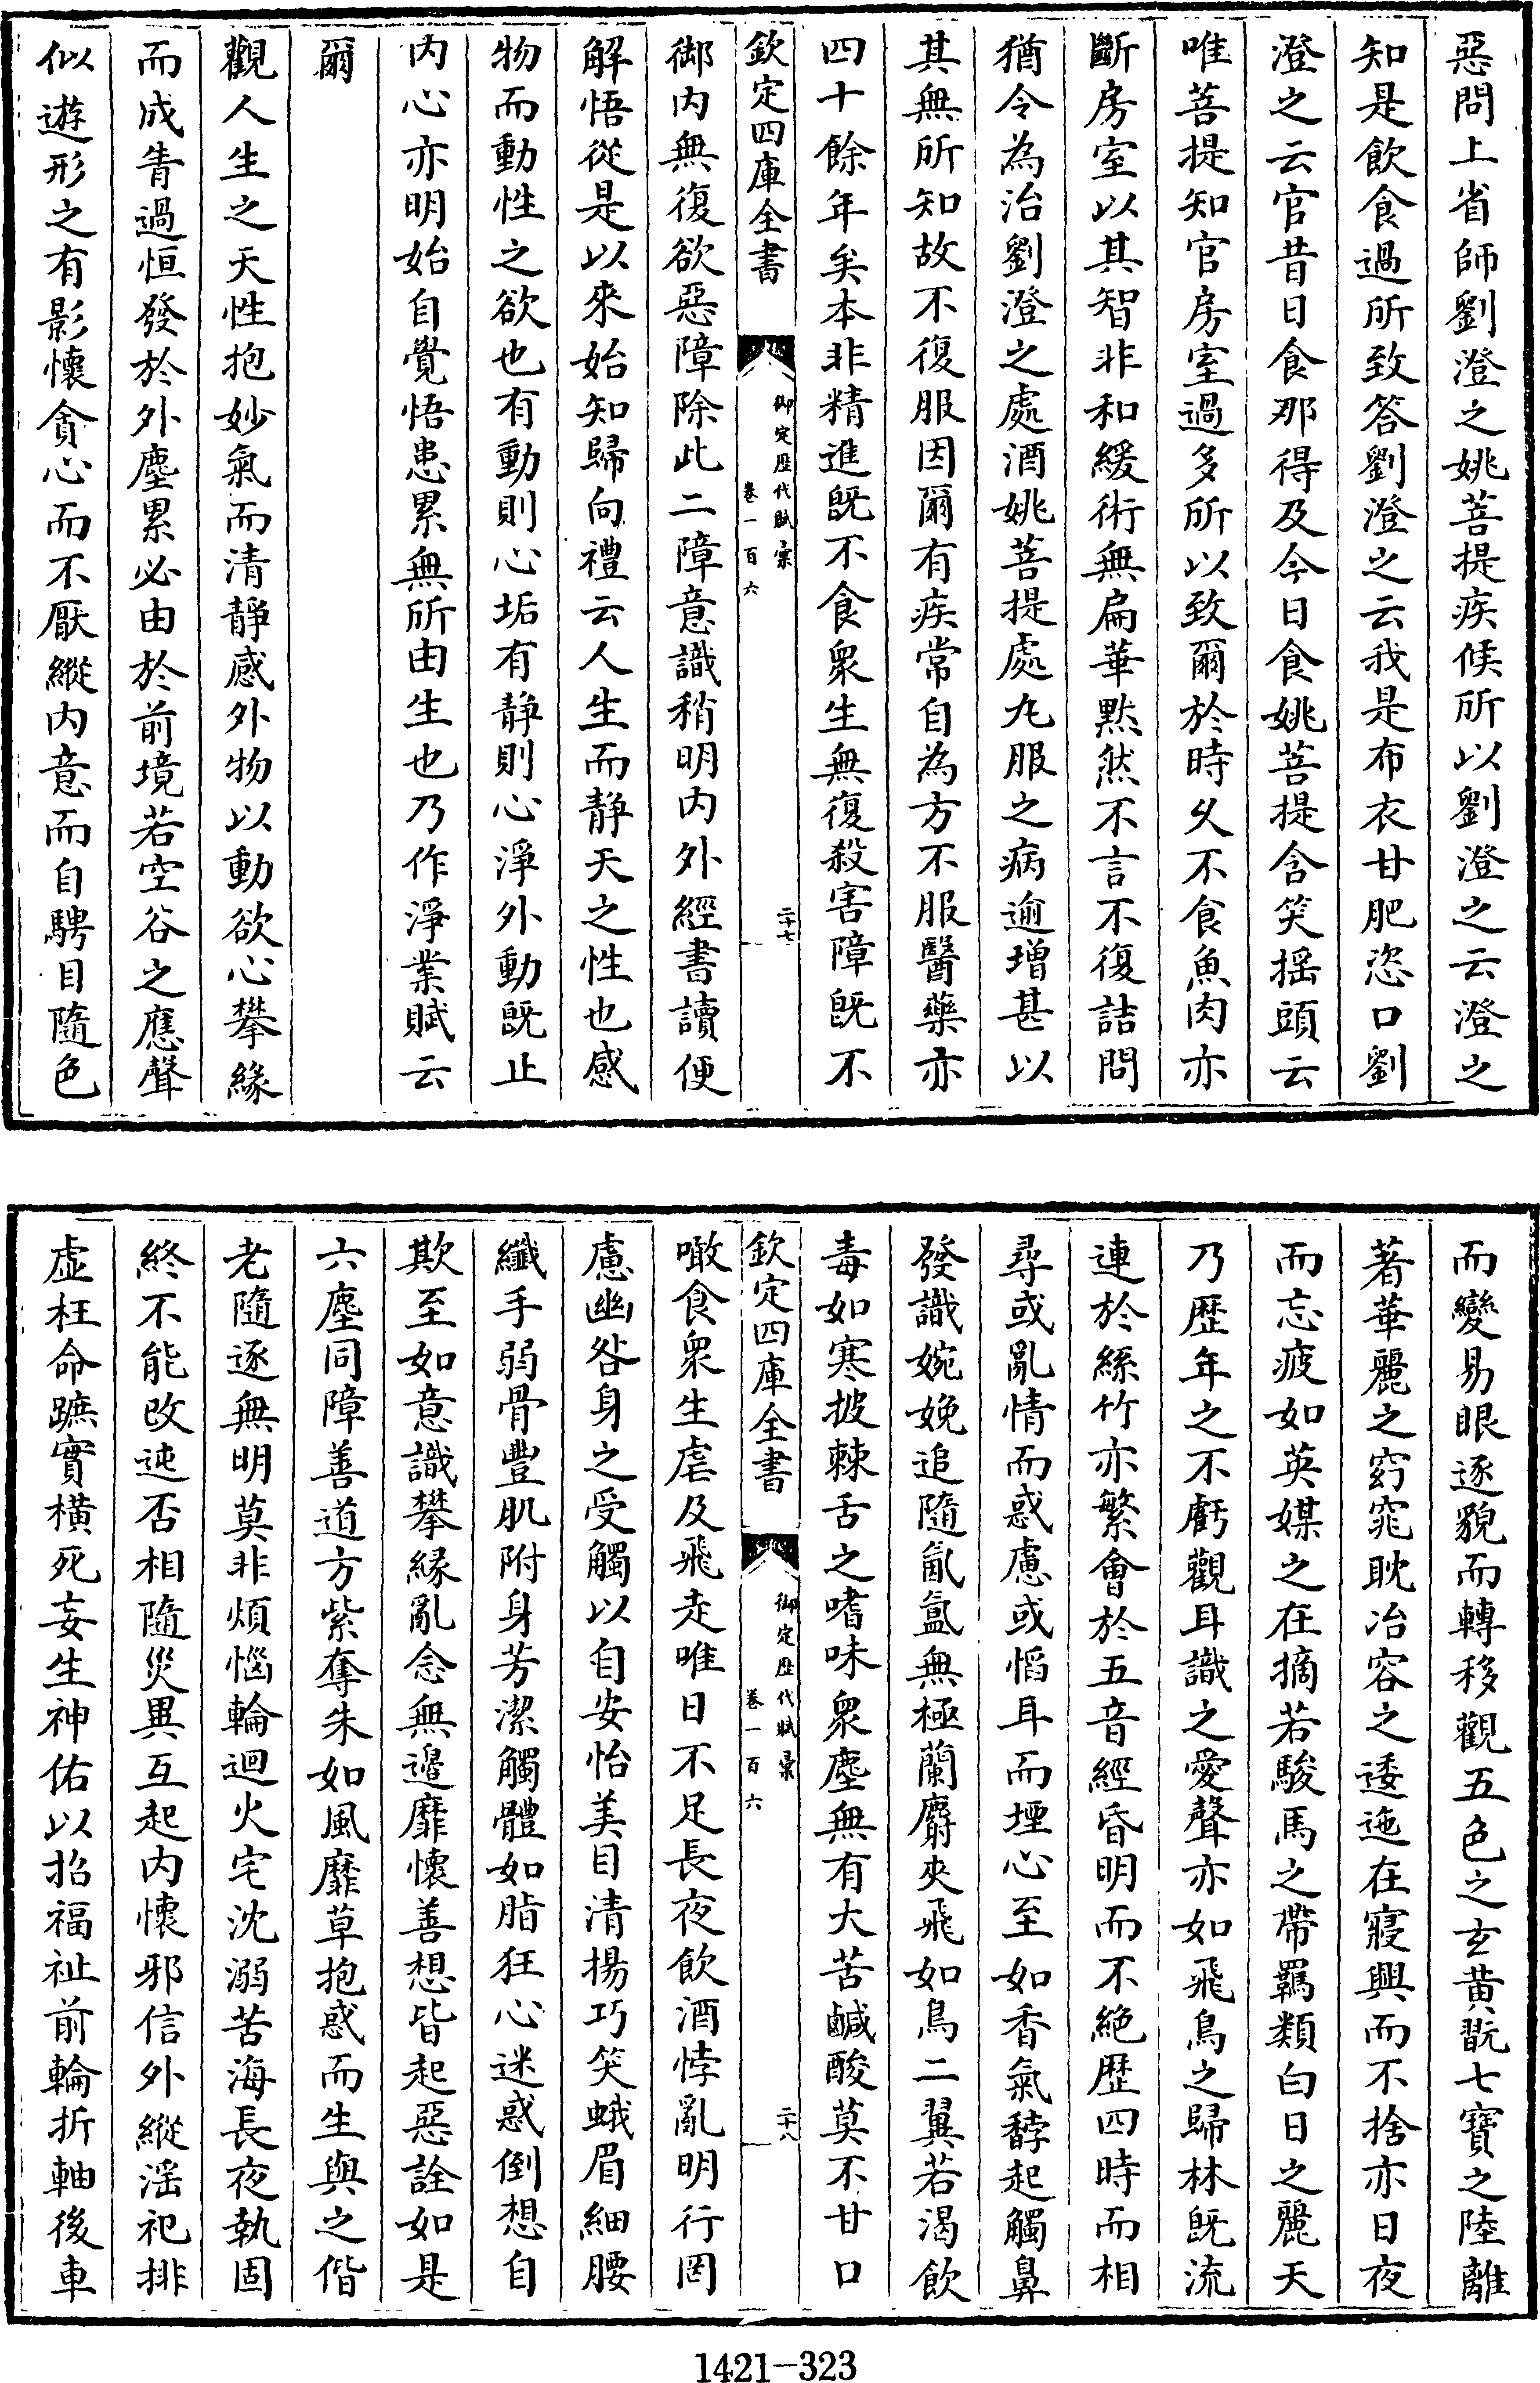 惡問上省師劉澄之姚菩提疾候所以劉澄之云澄之
知是飲食過所致答劉澄之云我是布衣甘肥恣口劉
澄之云官昔日食那得及今日食姚菩提含笑揺頭云
唯菩提知官房室過多所以致爾於時乆不食魚肉亦
斷房室以其智非和緩術無扁華黙然不言不復詰問
猶令為治劉澄之處酒姚菩提處丸服之病逾増甚以
其無所知故不復服因爾有疾常自為方不服醫藥亦
四十餘年矣本非精進既不食衆生無復殺害障既不
欽定四庫全書
御定歴代賦彙
卷一百六
二十七
御内無復欲惡障除此二障意識稍明内外經書讀便
解悟從是以來始知歸向禮云人生而靜天之性也感
物而動性之欲也有動則心垢有靜則心淨外動既止
内心亦明始自覺悟患累無所由生也乃作淨業賦云
爾
觀人生之天性抱妙氣而清靜感外物以動欲心攀緣
而成眚過恒發於外塵累必由於前境若空谷之應聲
似遊形之有影懷貪心而不厭縱内意而自騁目隨色
而變易眼逐貌而轉移觀五色之玄黄翫七寶之陸離
著華麗之窈窕耽冶容之逶迤在寢興而不捨亦日夜
而忘疲如英媒之在摘若駿馬之帶羈類白日之麗天
乃歴年之不虧觀耳識之愛聲亦如飛鳥之歸林既流
連於絲竹亦繁會於五音經昏明而不絶歴四時而相
尋或亂情而惑慮或慆耳而堙心至如香氣馞起觸鼻
發識婉娩追隨氤氲無極蘭麝夾飛如鳥二翼若渴飲
毒如寒披棘舌之嗜味衆塵無有大苦鹹酸莫不甘口
欽定四庫全書
御定歴代賦彙
卷一百六
二十八
噉食衆生虐及飛走唯日不足長夜飲酒悖亂明行罔
慮幽咎身之受觸以自安怡美目清揚巧笑蛾眉細腰
纖手弱骨豐肌附身芳潔觸體如脂狂心迷惑倒想自
欺至如意識攀縁亂念無邉靡懷善想皆起惡詮如是
六塵同障善道方紫奪朱如風靡草抱惑而生與之偕
老隨逐無明莫非煩惱輪迴火宅沈溺苦海長夜執固
終不能改迍否相隨災異互起内懷邪信外縱淫祀排
虚枉命蹠實横死妄生神佑以招福祉前輪折軸後車
1421-323